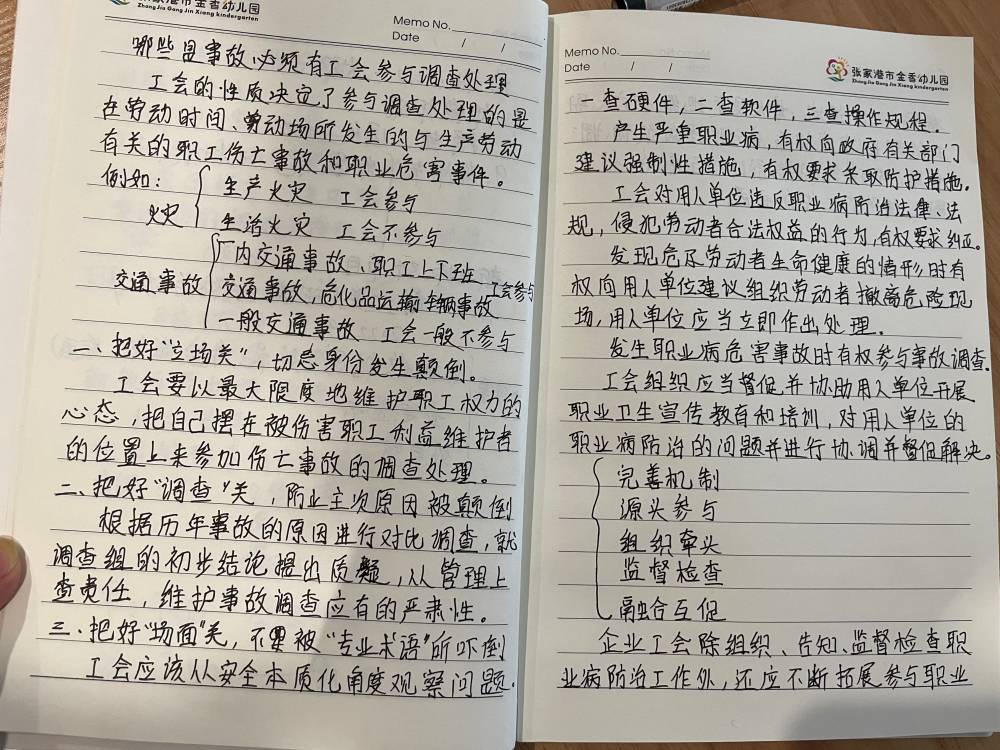 张家港市金香幼儿园
Zhang Jia Gang Jin Xiang kindergarten
Memo No.
Date / /
哪些是事故必须有工会参与调查处理
工会的性质决定了参与调查处理的是
在劳动时间、劳动场所发生的与生产劳动
有关的职工伤亡事故和职业危害事件。
例如:
火灾
生产火灾 工会参与
生活火灾 工会不参与
交通事故
厂内交通事故、职工上下班
交通事故,危化品运输车辆事故 工会参与
一般交通事故 工会一般不参与
一、把好“立场关”,切忌身份发生颠倒。
工会要以最大限度地维护职工权力的
心态,把自己摆在被伤害职工利益维护者
的位置上来参加伤亡事故的调查处理。
二、把好“调查”关,防止主次原因被颠倒
根据历年事故的原因进行对比调查,就
调查组的初步结论提出质疑,从管理上
查责任,维护事故调查应有的严肃性。
三、把好“场面”关,不要被“专业术语”所吓倒
工会应该从安全本质化角度观察问题.
Memo No.
Date / /
张家港市金香幼儿园
Zhang Jia Gang Jin Xiang kindergarten
一查硬件,二查软件,三查操作规程.
产生严重职业病,有权向政府有关部门
建议强制性措施,有权要求采取防护措施.
工会对用人单位违反职业病防治法律、法
规,侵犯劳动者合法权益的行为,有权要求纠正。
发现危及劳动者生命健康的情形时有
权向用人单位建议组织劳动者撤离危险现
场,用人单位应当立即作出处理.
发生职业病危害事故时有权参与事故调查.
工会组织应当督促并协助用人单位开展
职业卫生宣传教育和培训,对用人单位的
职业病防治的问题并进行协调并督促解决。
完善机制
源头参与
组织牵头
监督检查
融合互促
企业工会除组织、告知、监督检查职
业病防治工作外,还应不断拓展参与职业